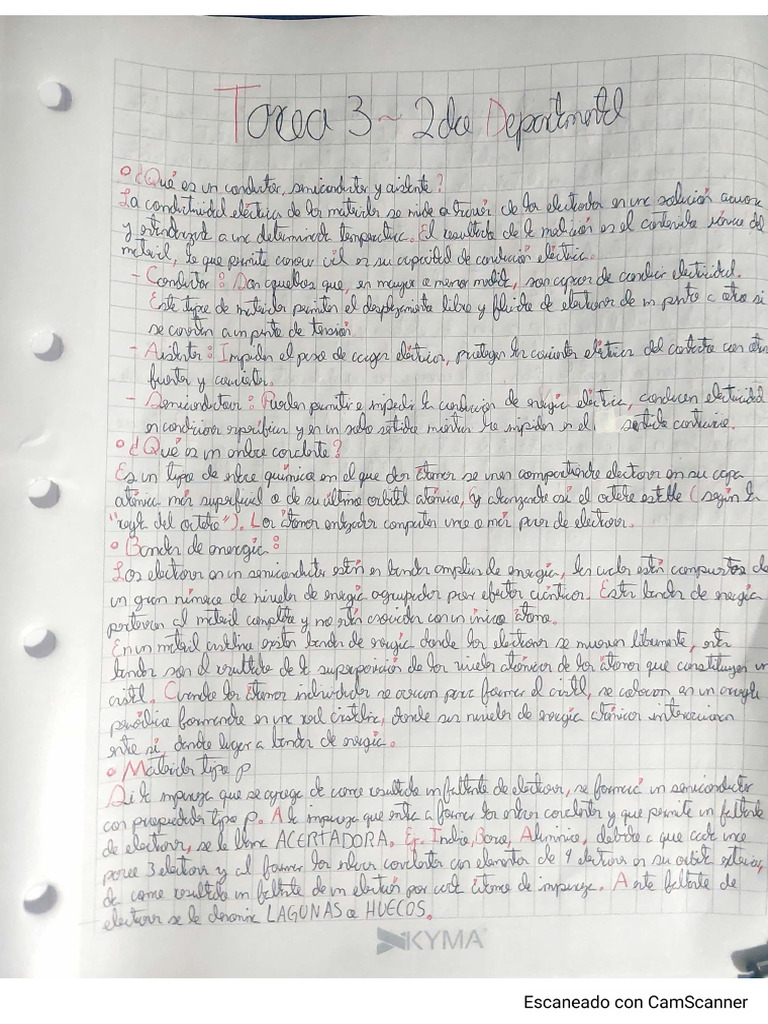 Tarea 3 ~ 2do Departmental
¿Qué es un conductor, semiconductor y aislante?
La conductividad eléctrica de los materiales se mide a través de los electrodos en una solución acuosa
y a una determinada temperatura. El resultado de la medición es el contenido iónico del
material, lo que permite conocer cuál es su capacidad de conducción eléctrica.
- Conductor: Son aquellos que, en mayor o menor medida, son capaces de conducir electricidad.
Este tipo de materiales permiten el desplazamiento libre y fluido de electrones de un punto a otro si
se conectan a un punto de tensión.
- Aislante: Impiden el paso de cargas eléctricas, protegen las corrientes eléctricas del contacto con otras
fuentes y corrientes.
- Semiconductores: Pueden permitir e impedir la conducción de energía eléctrica, conducen electricidad
en condiciones específicas y en un solo sentido mientras la impiden en el sentido contrario.
¿Qué es un enlace covalente?
Es un tipo de enlace químico en el que dos átomos se unen compartiendo electrones en su capa
atómica más superficial o de su último orbital atómico, y alcanzando así el octeto estable (según la
"regla del octeto"). Los átomos enlazados comparten uno o más pares de electrones.
Bandas de energía:
Los electrones en un semiconductor están en bandas amplias de energía, las cuales están compuestas de
un gran número de niveles de energía agrupados por efectos cuánticos. Estas bandas de energía
pertenecen al material completo y no están asociadas con un único átomo.
En un metal cristalino existen bandas de energía donde los electrones se mueven libremente, estas
bandas son el resultado de la superposición de los niveles atómicos de los átomos que constituyen un
cristal. Cuando los átomos individuales se acercan para formar el cristal, se colocan en un arreglo
periódico formando en una red cristalina, donde sus niveles de energía atómicos interaccionan
entre sí, dando lugar a bandas de energía.
Materiales tipo p
Si la impureza que se agrega da como resultado un faltante de electrones, se formará un semiconductor
con propiedades tipo p. A la impureza que entra a formar los enlaces covalentes y que permite un faltante
de electrones, se le llama ACERTADORA. Ej. Indio, Boro, Aluminio, debido a que cada uno
posee 3 electrones y al formar los enlaces covalentes con elementos de 4 electrones en su órbita exterior,
da como resultado un faltante de un electrón por cada átomo de impureza. A este faltante de
electrones se le denomina LAGUNAS o HUECOS.
KYMA
Escaneado con CamScanner